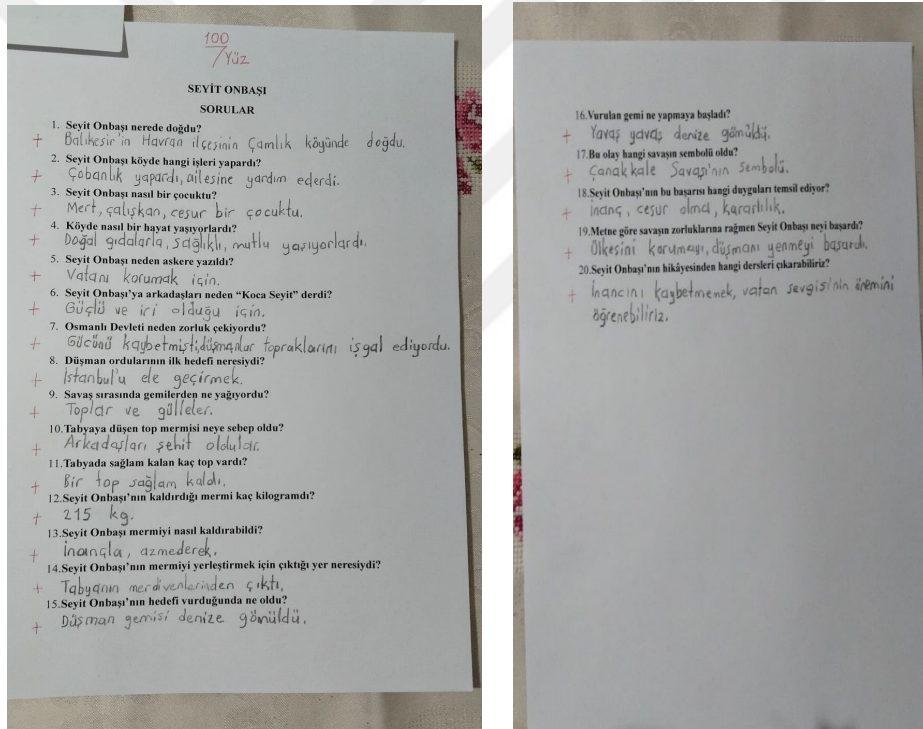 100
/Yüz
SEYİT ONBAŞI
SORULAR
1. Seyit Onbaşı nerede doğdu?
+ Balıkesir'in Havran ilçesinin Çamlık köyünde doğdu.
2. Seyit Onbaşı köyde hangi işleri yapardı?
+ Çobanlık yapardı, ailesine yardım ederdi.
3. Seyit Onbaşı nasıl bir çocuktu?
+ Mert, çalışkan, cesur bir çocuktu.
4. Köyde nasıl bir hayat yaşıyorlardı?
+ Doğal gıdalarla, sağlıklı, mutlu yaşıyorlardı.
5. Seyit Onbaşı neden askere yazıldı?
+ Vatanı korumak için.
6. Seyit Onbaşı'ya arkadaşları neden "Koca Seyit" derdi?
+ Güçlü ve iri olduğu için.
7. Osmanlı Devleti neden zorluk çekiyordu?
+ Gücünü kaybetmişti, düşmanlar topraklarını işgal ediyordu.
8. Düşman ordularının ilk hedefi neresiydi?
+ İstanbul'u ele geçirmek.
9. Savaş sırasında gemilerden ne yağıyordu?
+ Toplar ve gülleler.
10.Tabyaya düşen top mermisi neye sebep oldu?
+ Arkadaşları şehit oldular.
11.Tabyada sağlam kalan kaç top vardı?
+ Bir top sağlam kaldı.
12.Seyit Onbaşı'nın kaldırdığı mermi kaç kilogramdı?
+ 215 kg.
13.Seyit Onbaşı mermiyi nasıl kaldırabildi?
+ İnançla, azmederek.
14.Seyit Onbaşı'nın mermiyi yerleştirmek için çıktığı yer neresiydi?
+ Tabyanın merdivenlerinden çıktı.
15.Seyit Onbaşı'nın hedefi vurduğunda ne oldu?
+ Düşman gemisi denize gömüldü.
16.Vurulan gemi ne yapmaya başladı?
+ Yavaş yavaş denize gömüldü.
17.Bu olay hangi savaşın sembolü oldu?
+ Çanakkale Savaşı'nın sembolü.
18.Seyit Onbaşı'nın bu başarısı hangi duyguları temsil ediyor?
+ İnanç, cesur olma, kararlılık.
19.Metne göre savaşın zorluklarına rağmen Seyit Onbaşı neyi başardı?
+ Ülkesini korumayı, düşmanı yenmeyi başardı.
20.Seyit Onbaşı'nın hikâyesinden hangi dersleri çıkarabiliriz?
+ İnancını kaybetmemek, vatan sevgisi'nin önemini
öğrenebiliriz.